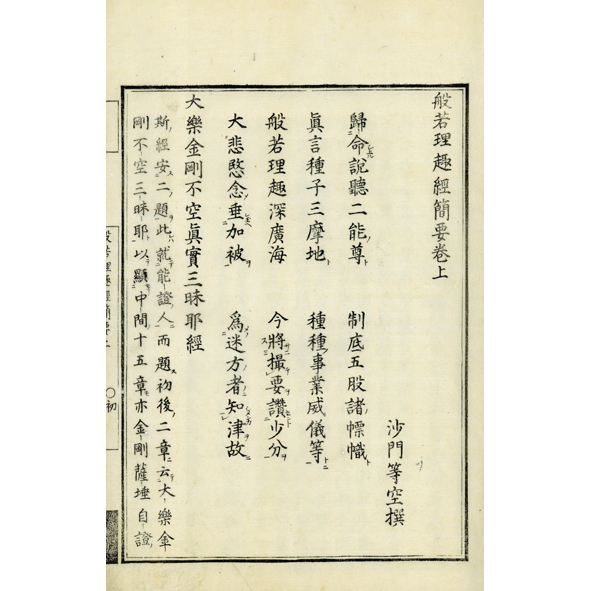 般若理趣經簡要卷上
沙門等空撰
歸命說聽二能尊 制底五股諸幖幟
眞言種子三摩地 種種事業威儀等
般若理趣深廣海 今將撮要讚少分
大悲愍念垂加被 爲迷方者知津故
大樂金剛不空眞實三昧耶經
斯經安二題此就能證人而題初後二章云大樂金
剛不空三昧耶以顯中間十五章亦金剛薩埵自證
般若理趣經簡要上
〇初